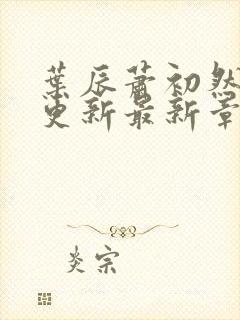 葉辰蕭初然
更新最新章
炎宗